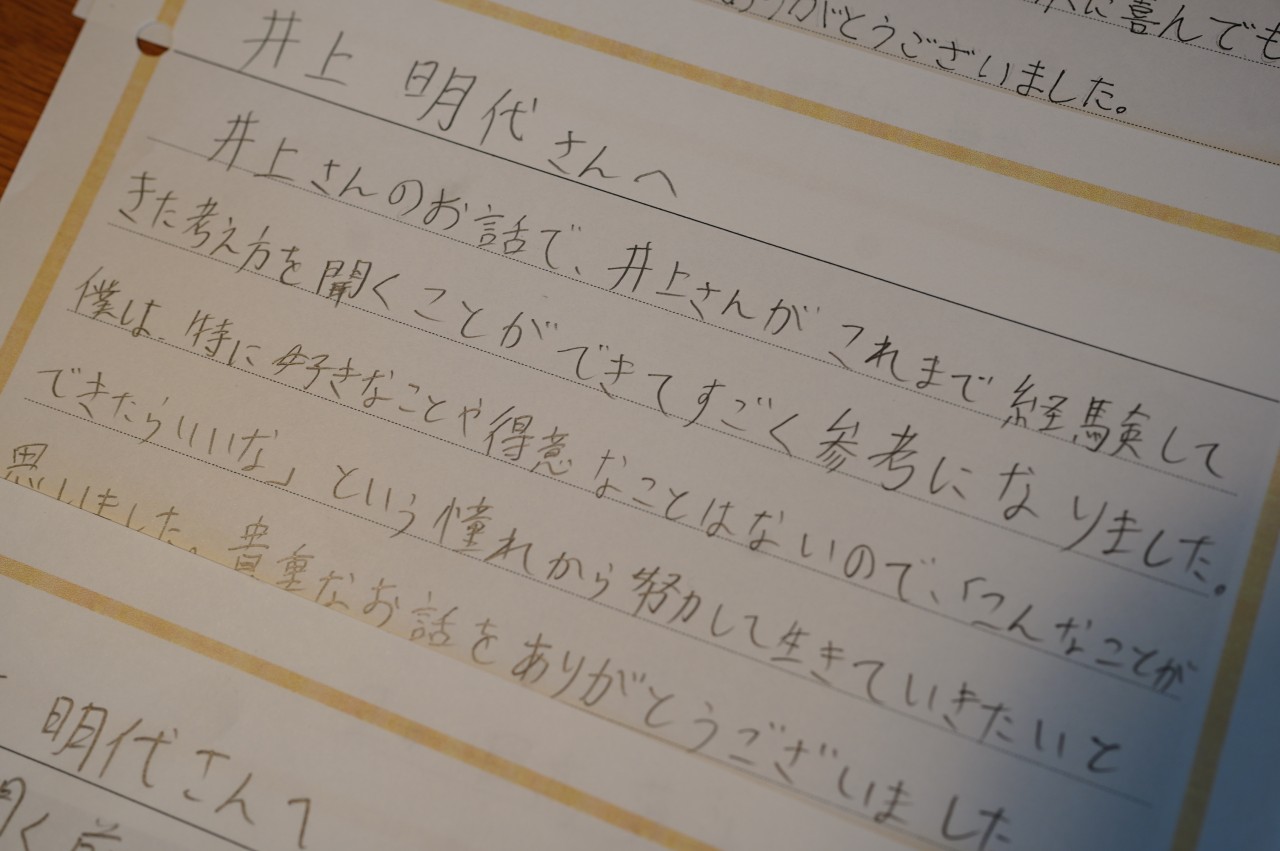 に喜んでも
ありがとうございました。
井上 明代さんへ
井上さんのお話で、井上さんがこれまで経験して
きた考え方を聞くことができてすごく参考になりました。
僕は、特に好きなことや得意なことはないので、「こんなことが
できたらいいな」という憧れから努力して生きていきたいと
思いました。貴重なお話をありがとうございました
明代さんへ
聞く前